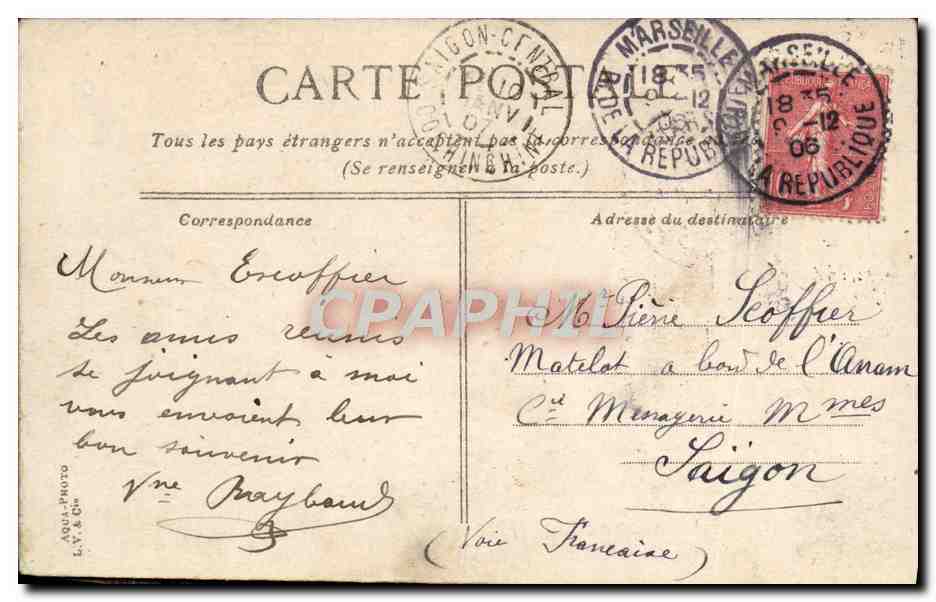 CARTE POSTALE
Tous les pays étrangers n'acceptent pas la correspondance
(Se renseigner à la poste.)
SAIGON-CENTRAL
10
JANV
07
COCHINCHINE
MARSEILLE
18 35
12
06
R. DE LA REPUBLIQUE
MARSEILLE
18 35
-12
06
LA REPUBLIQUE
Correspondance
Monsieur Escoffier
Les amis réunis
se joignant à moi
vous envoient leur
bon souvenir
Vve Raybaud
Adresse du destinataire
Mr Pierre Scoffier
Matelot a bord de l'Annam
Cie Menagerie Mmes
Saigon
(Voie Francaise)
AQUA-PHOTO
L.V. & Cie
CPAPHIL